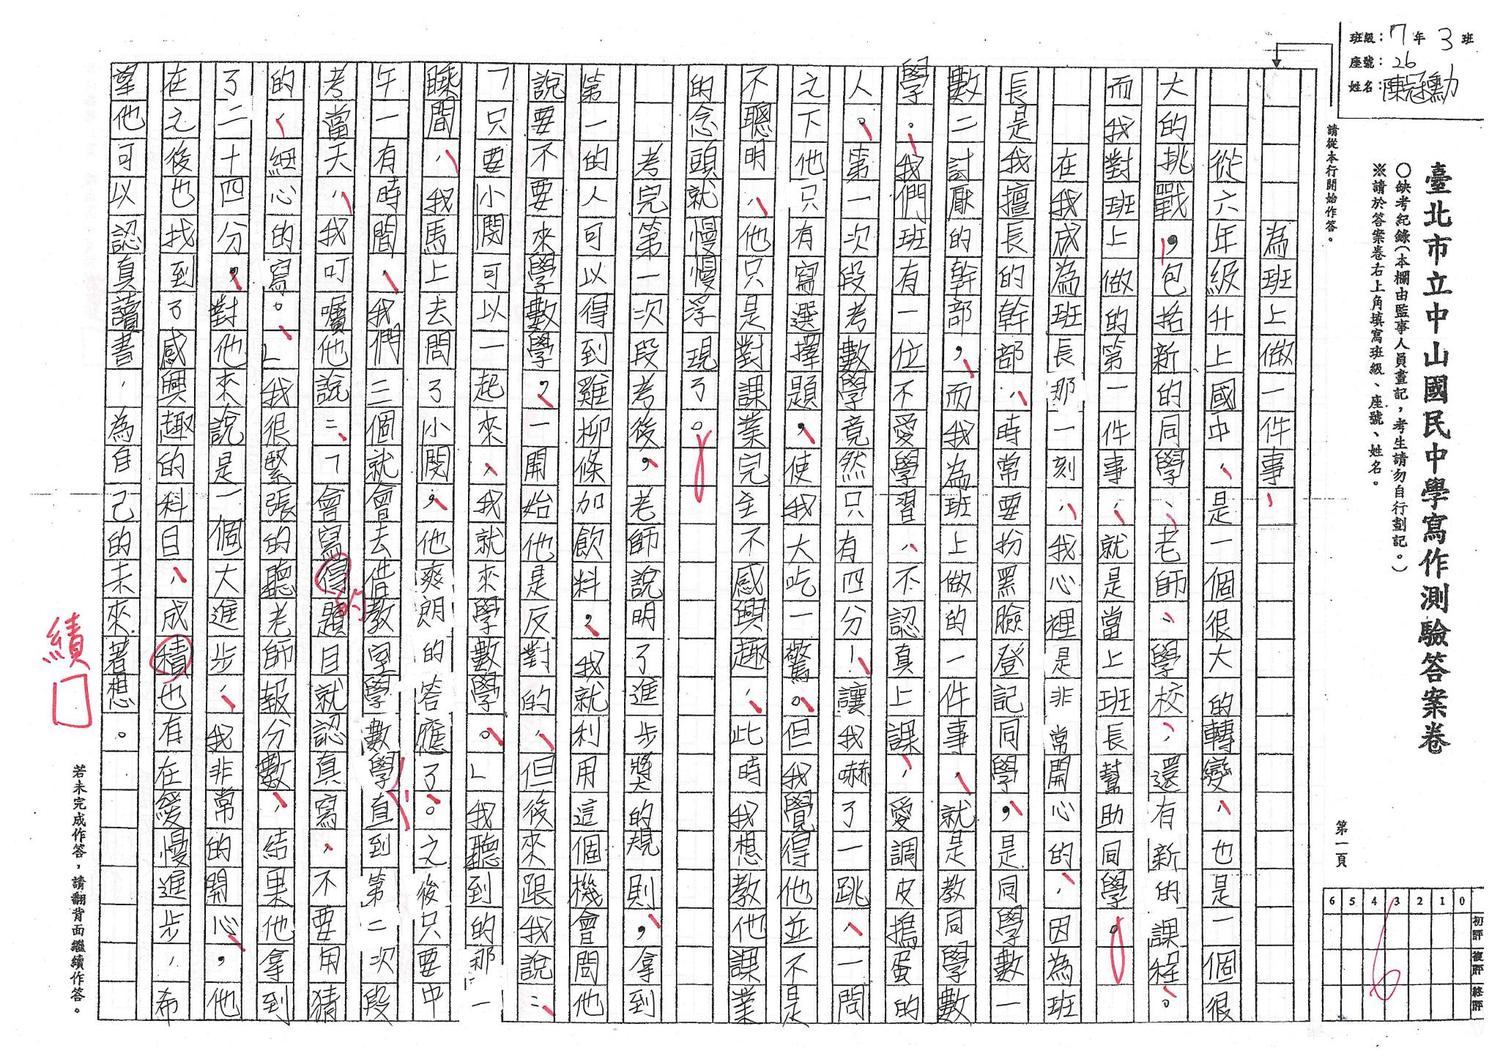 班級：7年3班
座號：26
姓名：陳冠勳
臺北市立中山國民中學寫作測驗答案卷
○缺考紀錄（本欄由監事人員畫記，考生請勿自行劃記。）
※請於答案卷右上角填寫班級、座號、姓名。
第一頁
請從本行開始作答。
6 5 4 3 2 1 0
初評
複評
終評
6
為班上做一件事
從六年級升上國中，是一個很大的轉變，也是一個很
大的挑戰，包括新的同學、老師、學校，還有新的課程。
而我對班上做的第一件事，就是當上班長幫助同學。
在我成為班長那一刻，我心裡是非常開心的，因為班
長是我擅長的幹部，時常要扮黑臉登記同學，是同學數一
數二討厭的幹部，而我為班上做的一件事，就是教同學數
學。我們班有一位不愛學習，不認真上課，愛調皮搗蛋的
人。第一次段考數學竟然只有四分！讓我嚇了一跳，一問
之下他只有寫選擇題，使我大吃一驚。但我覺得他並不是
不聰明，他只是對課業完全不感興趣，此時我想教他課業
的念頭就慢慢浮現了。
考完第一次段考後，老師說明了進步獎的規則，拿到
第一的人可以得到雞柳條加飲料，我就利用這個機會問他
說要不要來學數學，一開始他是反對的，但後來跟我說：
「只要小閔可以一起來，我就來學數學。」我聽到的那一
瞬間，我馬上去問了小閔，他爽朗的答應了。之後只要中
午一有時間，我們三個就會去借教室學數學直到第二次段
考當天，我叮嚀他說：「會寫得題目就認真寫，不要用猜
的，細心的寫。」我很緊張的聽老師報分數，結果他拿到
了二十四分，對他來說是一個大進步，我非常的開心，他
在之後也找到了感興趣的科目，成積也有在緩慢進步，希
望他可以認真讀書，為自己的未來著想。
的
績
若未完成作答，請翻背面繼續作答。